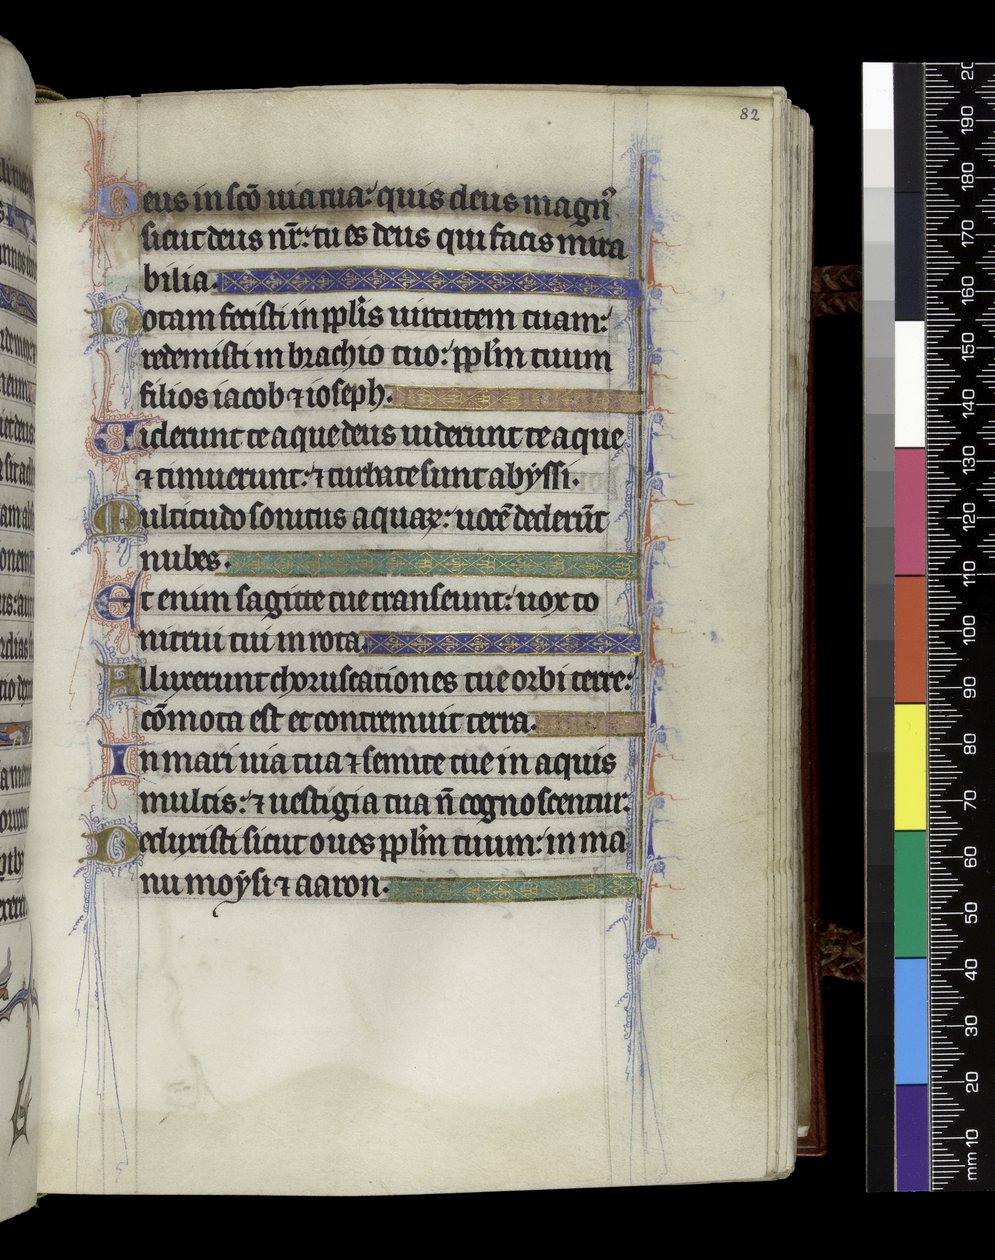 82
Deus in scō uia tua: quis deus magnꝰ
sicut deus nr̄: tu es deus qui facis mira
bilia.
Notam fecisti in pplīs uirtutem tuam:
redemisti in brachio tuo: pplm̄ tuum
filios iacob ⁊ ioseph.
Uiderunt te aque deus uiderunt te aque
⁊ timuerunt: ⁊ turbate sunt abyssi.
Multitudo sonitus aquaꝝ: uocē dederūt
nubes.
Et enim sagitte tue transeunt: uox to
nitrui tui in rota.
Alluxerunt choruscationes tue orbi terre:
cōmota est et contremuit terra.
In mari uia tua ⁊ semite tue in aquis
multis: ⁊ uestigia tua ñ cognoscentur.
Deduxisti sicut oues pplm̄ tuum: in ma
nu moysi ⁊ aaron.
mm 10 20 30 40 50 60 70 80 90 100 110 120 130 140 150 160 170 180 190